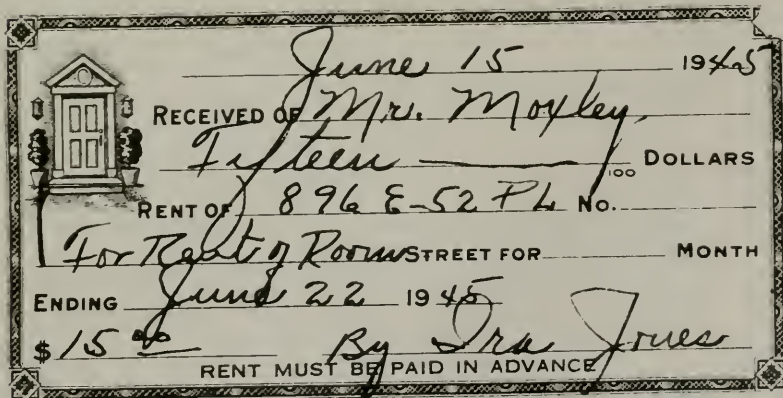 June 15 1945
RECEIVED OF Mr. Moxley,
Fifteen — /100 DOLLARS
RENT OF 896 E-52 PL NO.
For Rent of Room STREET FOR MONTH
ENDING June 22 1945
$15.00 By Ira Jones
RENT MUST BE PAID IN ADVANCE